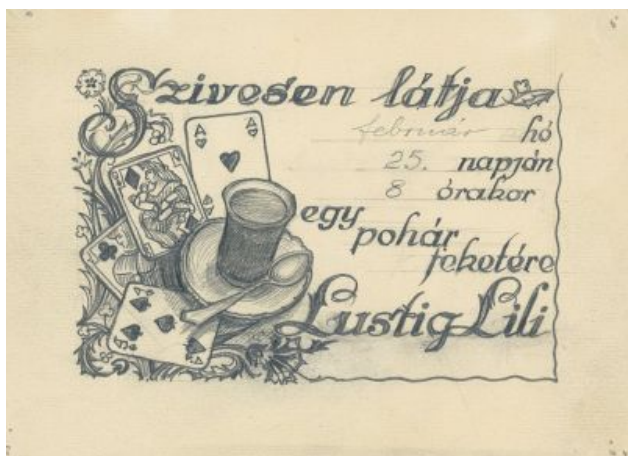 Szivesen látja
február hó
25. napján
8 órakor
egy
pohár
feketére
Lustig Lili
A
A